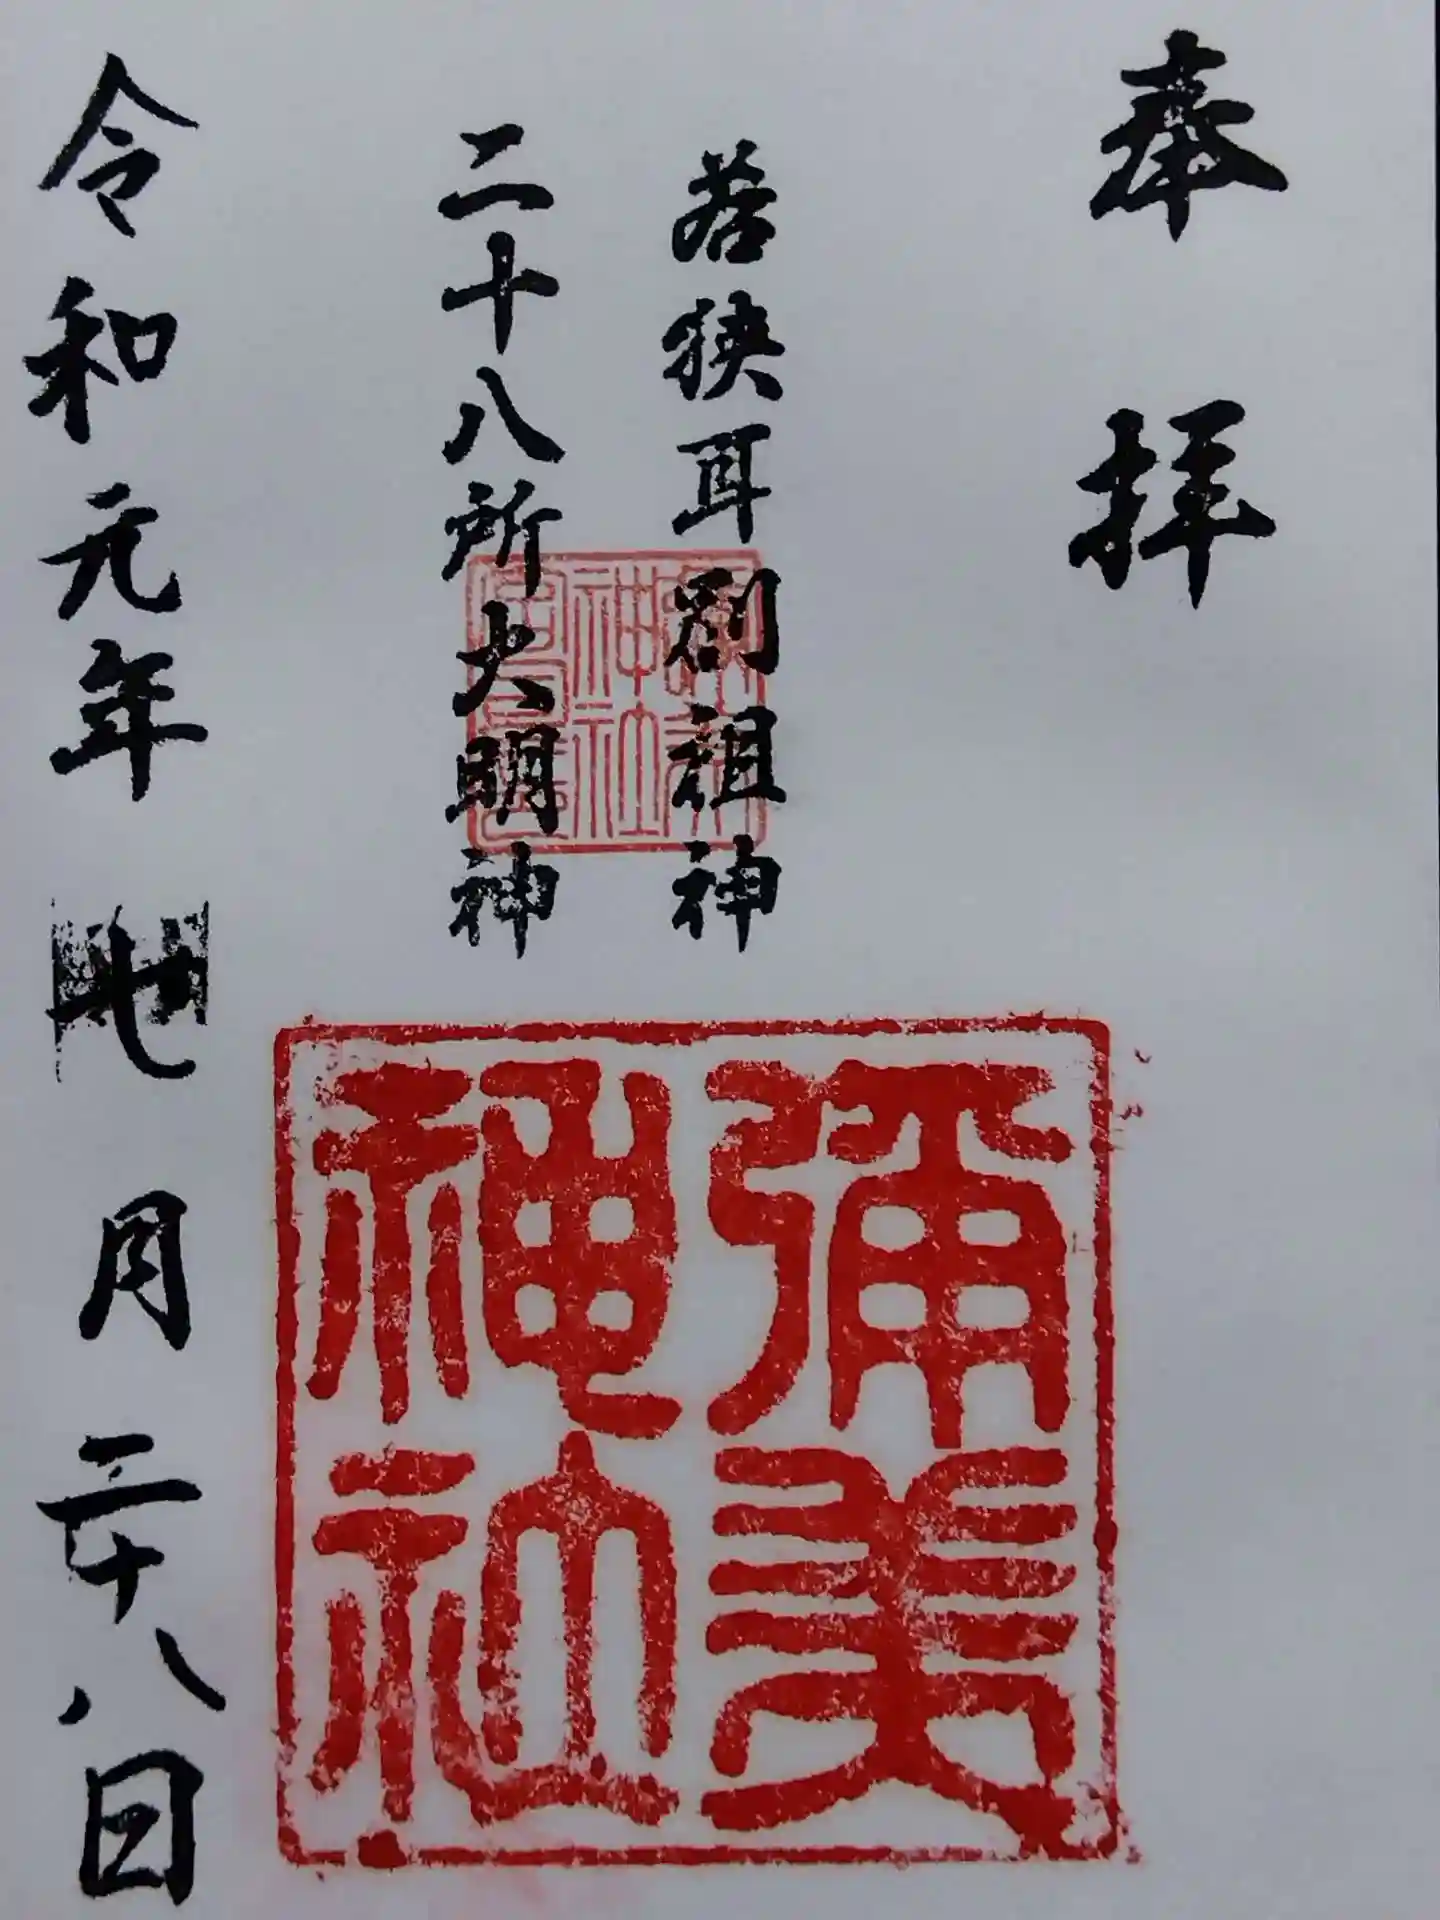 奉拝
若狭耳別祖神
二十八所大明神
彌美
神社
彌美
神社
令和元年七月二十八日